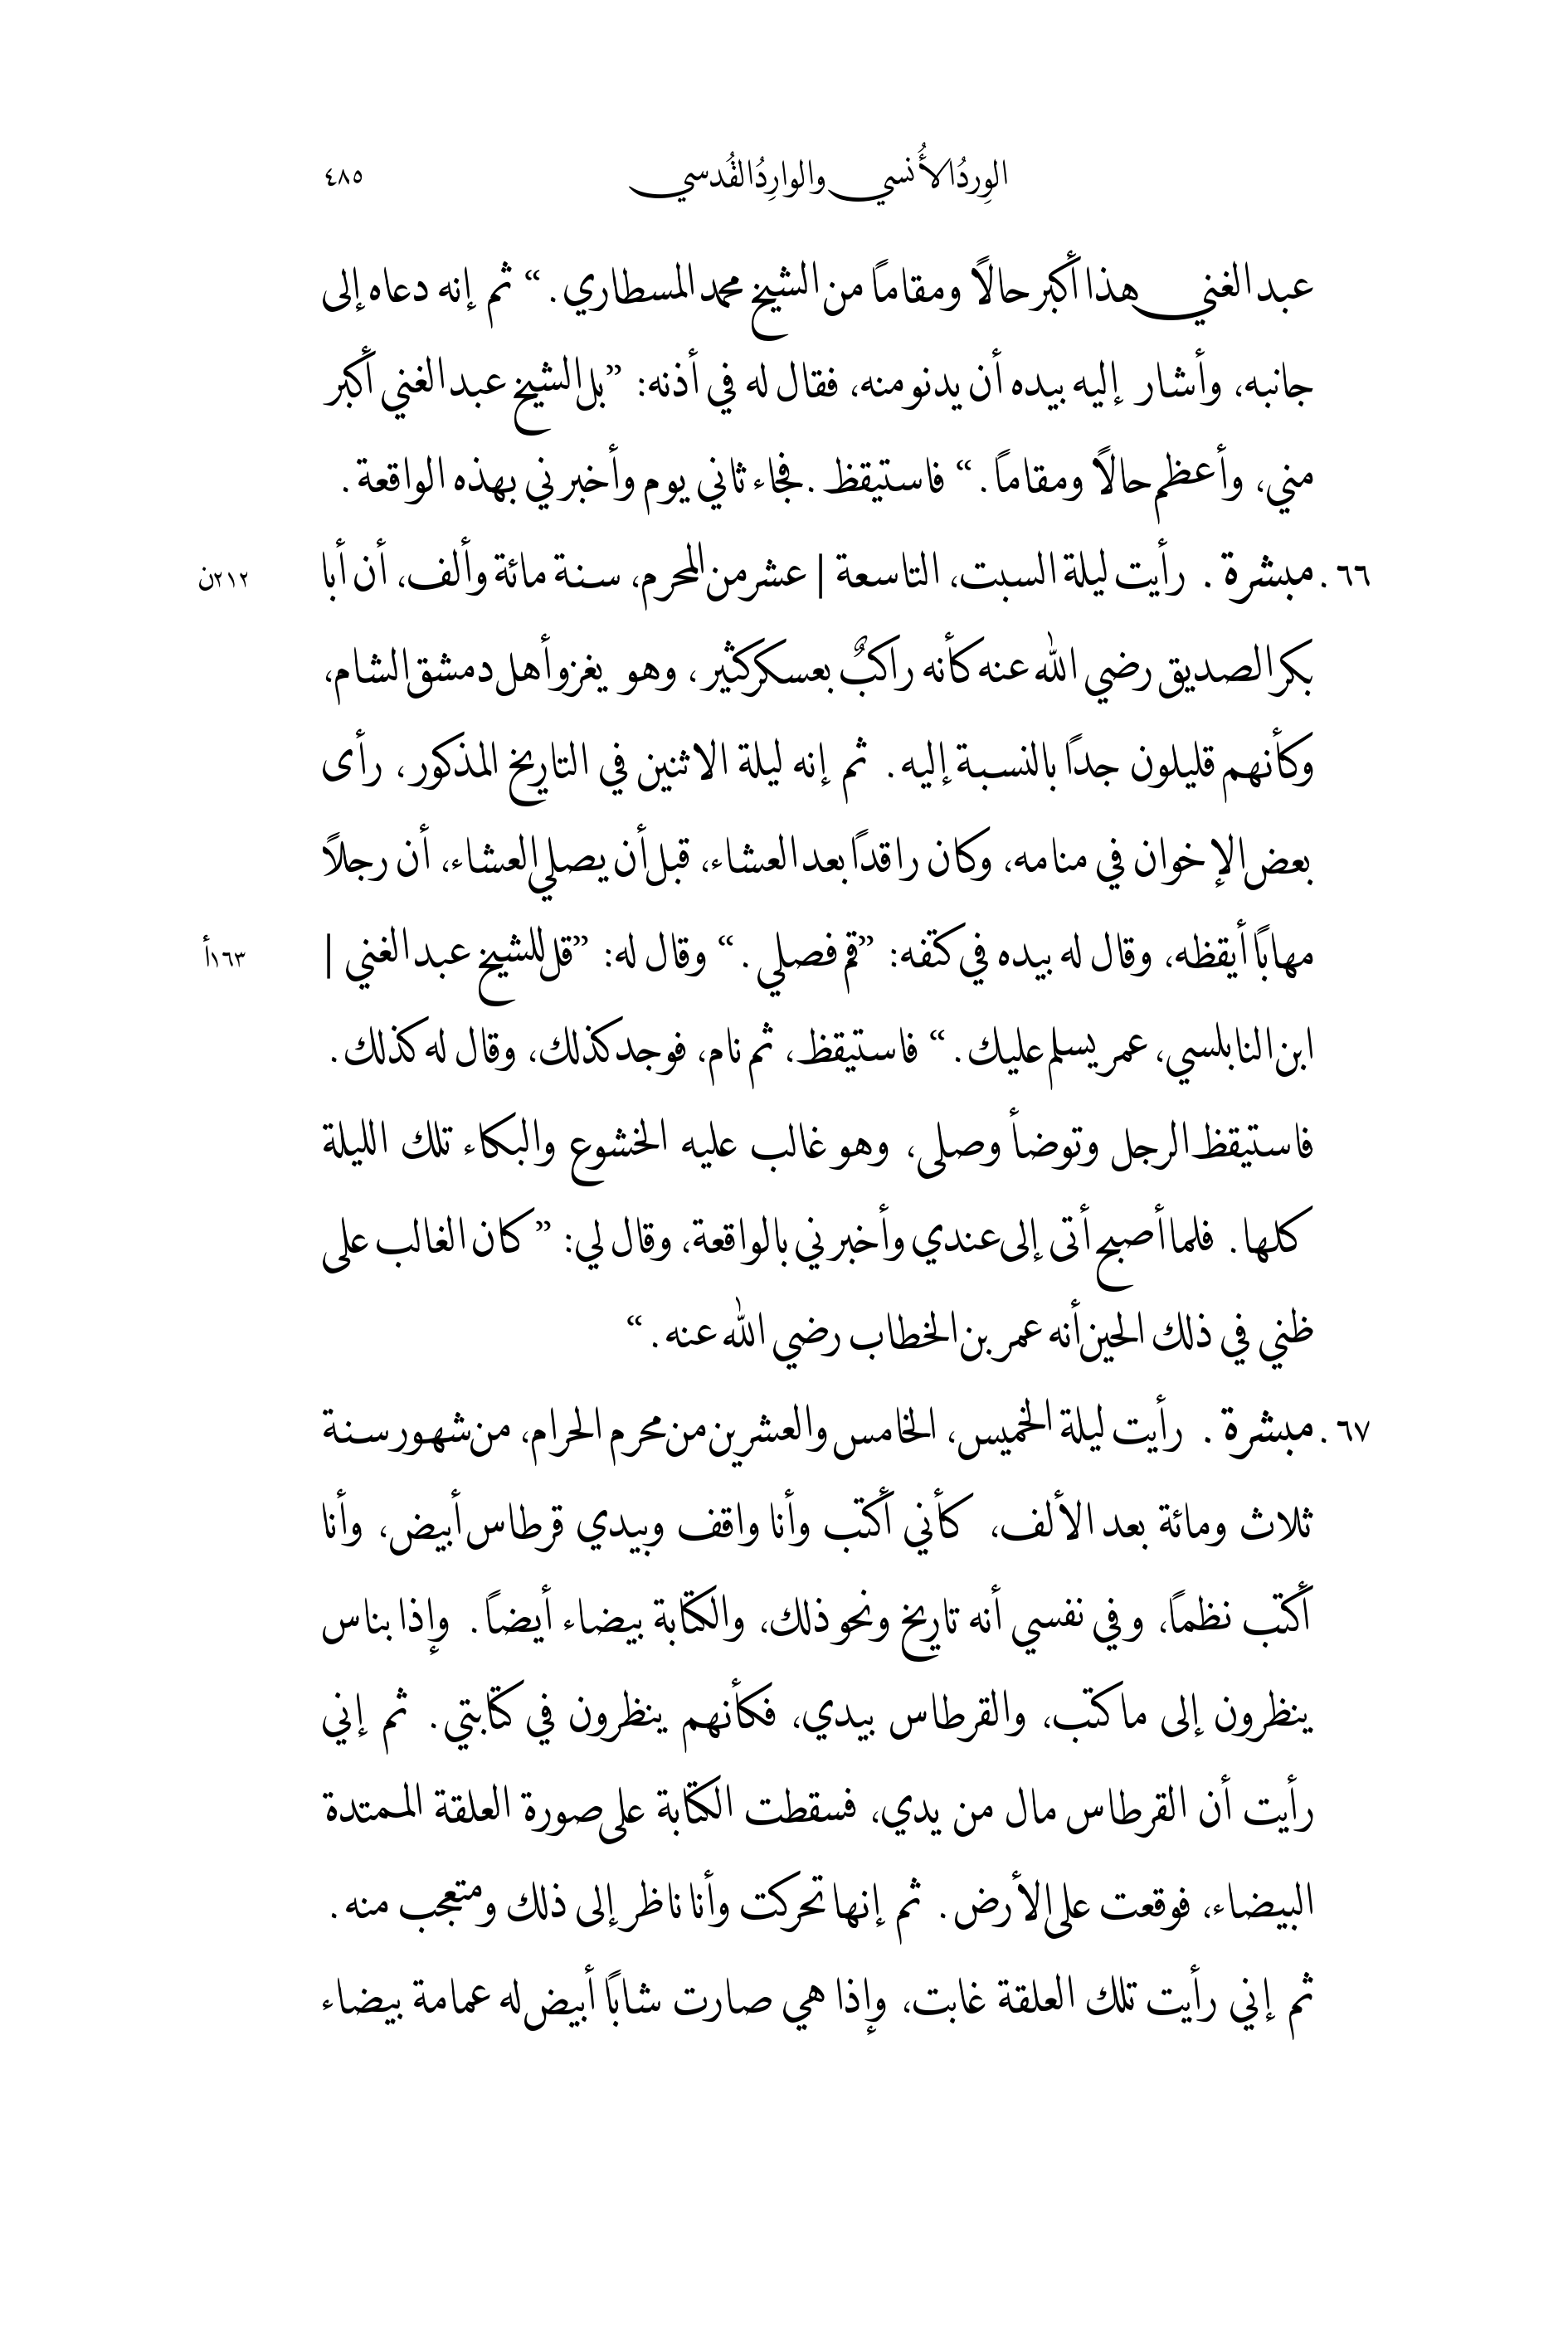 الوِردُ الأُنسي والوارِدُ القُدسي ٤٨٥
عبد الغني هذا أكبر حالًا ومقامًا من الشيخ محمد المسطاري.“ ثم إنه دعاه إلى
جانبه، وأشار إليه بيده أن يدنو منه، فقال له في أذنه: ”بل الشيخ عبد الغني أكبر
مني، وأعظم حالًا ومقامًا.“ فاستيقظ. فجاء ثاني يوم وأخبرني بهذه الواقعة.
٦٦. مبشرة. رأيت ليلة السبت، التاسعة | عشر من المحرم، سنة مائة وألف، أن أبا ٢١٢ن
بكر الصديق رضي الله عنه كأنه راكبٌ بعسكر كثير، وهو يغزو أهل دمشق الشام،
وكأنهم قليلون جدًا بالنسبة إليه. ثم إنه ليلة الاثنين في التاريخ المذكور، رأى
بعض الإخوان في منامه، وكان راقدًا بعد العشاء، قبل أن يصلي العشاء، أن رجلًا
مهابًا أيقظه، وقال له بيده في كتفه: ”قم فصلي.“ وقال له: ”قل للشيخ عبد الغني | ١٦٣أ
ابن النابلسي، عمر يسلم عليك.“ فاستيقظ، ثم نام، فوجد كذلك، وقال له كذلك.
فاستيقظ الرجل وتوضأ وصلى، وهو غالب عليه الخشوع والبكاء تلك الليلة
كلها. فلما أصبح أتى إلى عندي وأخبرني بالواقعة، وقال لي: ”كان الغالب على
ظني في ذلك الحين أنه عمر بن الخطاب رضي الله عنه.“
٦٧. مبشرة. رأيت ليلة الخميس، الخامس والعشرين من محرم الحرام، من شهور سنة
ثلاث ومائة بعد الألف، كأني أكتب وأنا واقف وبيدي قرطاس أبيض، وأنا
أكتب نظمًا، وفي نفسي أنه تاريخ ونحو ذلك، والكتابة بيضاء أيضًا. وإذا بناس
ينظرون إلى ما كتب، والقرطاس بيدي، فكأنهم ينظرون في كتابتي. ثم إني
رأيت أن القرطاس مال من يدي، فسقطت الكتابة على صورة العلقة الممتدة
البيضاء، فوقعت على الأرض. ثم إنها تحركت وأنا ناظر إلى ذلك ومتعجب منه.
ثم إني رأيت تلك العلقة غابت، وإذا هي صارت شابًا أبيض له عمامة بيضاء